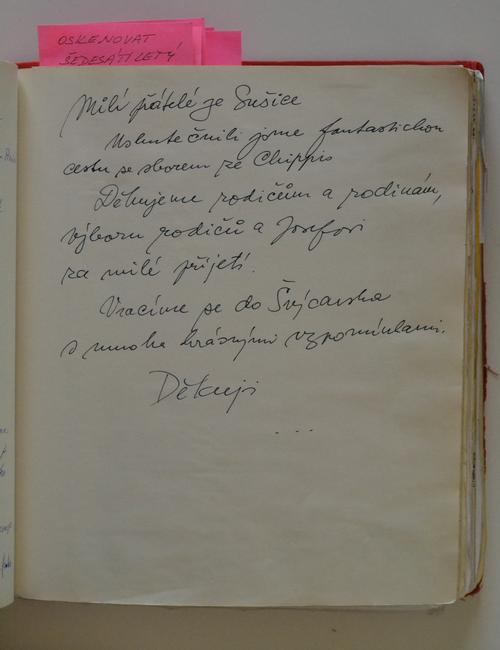 OSKENOVAT
ŠEDESÁTILETÝ
Milí přátelé ze Sušice
Uskutečnili jsme fantastickou
cestu se sborem ze Chippis
Děkujeme rodičům a rodinám,
výboru rodičů a Josefovi
za milé přijetí.
Vracíme se do Švýcarska
s mnoha krásnými vzpomínkami.
Děkuji
...